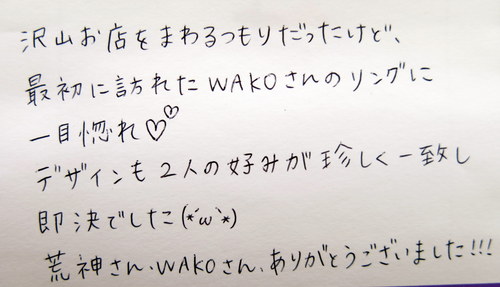 沢山お店をまわるつもりだったけど、
最初に訪れたWAKOさんのリングに
一目惚れ♡♡
デザインも2人の好みが珍しく一致し
即決でした(*´ω`*)
荒神さん、WAKOさん、ありがとうございました!!!